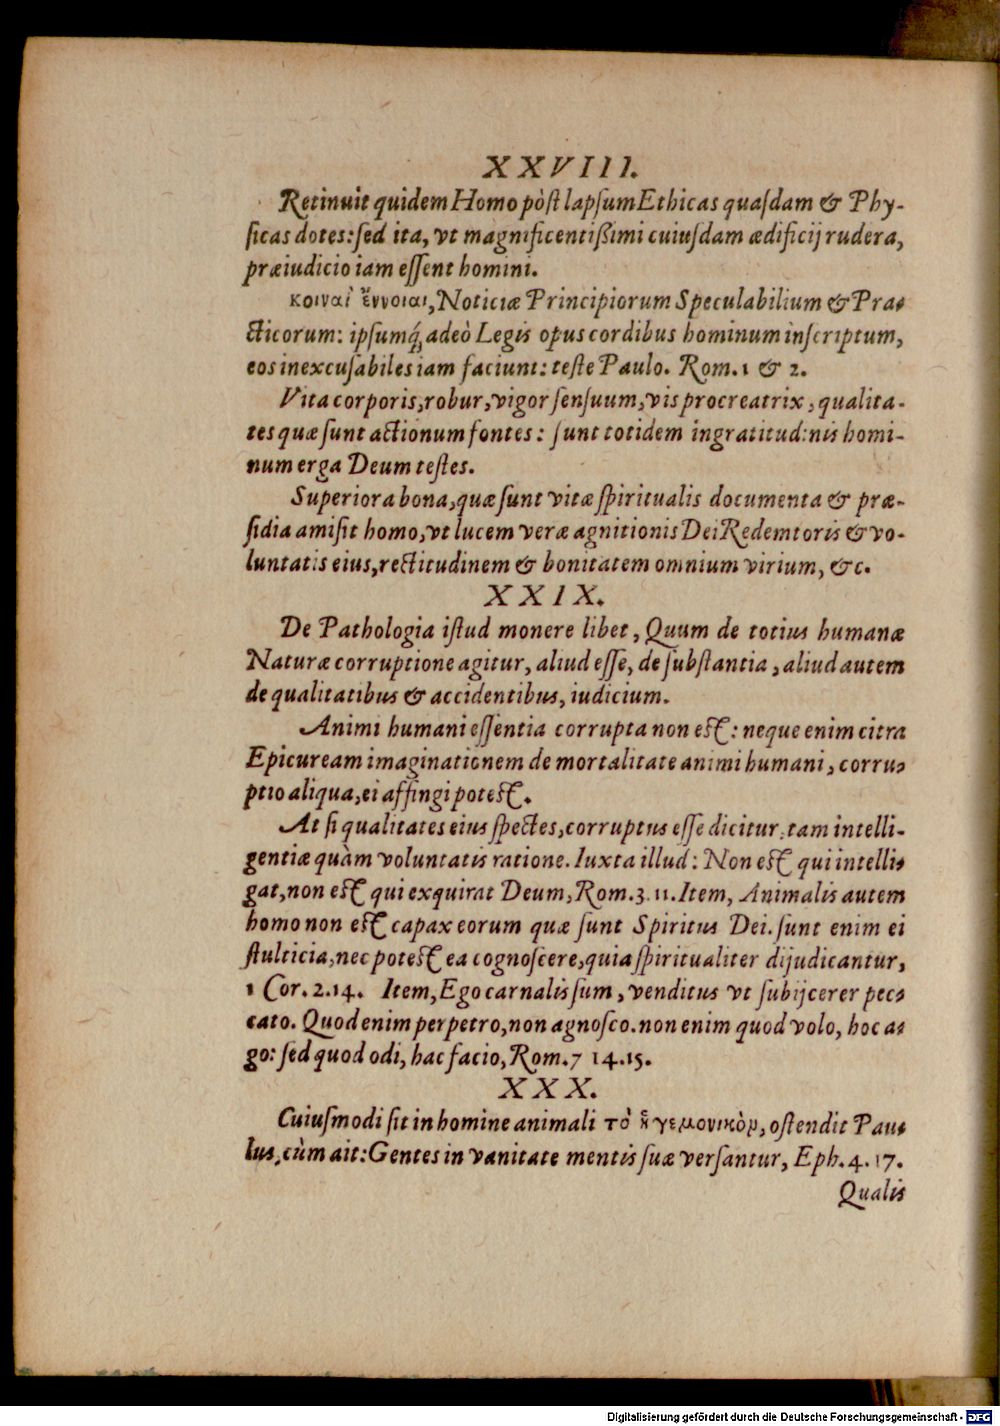 XXVIII.
Retinuit quidem Homo pòst lapsum Ethicas quasdam & Phy-
sicas dotes: sed ita, vt magnificentißimi cuiusdam ædificij rudera,
præiudicio iam essent homini.
κοιναὶ ἔννοιαι, Noticiæ Principiorum Speculabilium & Pra-
cticorum: ipsumq́; adeò Legis opus cordibus hominum inscriptum,
eos inexcusabiles iam faciunt: teste Paulo. Rom. 1 & 2.
Vita corporis, robur, vigor sensuum, vis procreatrix, qualita-
tes quæ sunt actionum fontes: sunt totidem ingratitudinis homi-
num erga Deum testes.
Superiora bona, quæ sunt vitæ spiritualis documenta & præ-
sidia amisit homo, vt lucem veræ agnitionis Dei Redemtoris & vo-
luntatis eius, rectitudinem & bonitatem omnium virium, &c.
XXIX.
De Pathologia istud monere libet, Quum de totius humanæ
Naturæ corruptione agitur, aliud esse, de substantia, aliud autem
de qualitatibus & accidentibus, iudicium.
Animi humani essentia corrupta non est: neque enim citra
Epicuream imaginationem de mortalitate animi humani, corru-
ptio aliqua, ei affingi potest.
At si qualitates eius spectes, corruptus esse dicitur, tam intelli-
gentiæ quàm voluntatis ratione. Iuxta illud: Non est qui intelli-
gat, non est qui exquirat Deum, Rom. 3. 11. Item, Animalis autem
homo non est capax eorum quæ sunt Spiritus Dei. sunt enim ei
stulticia, nec potest ea cognoscere, quia spiritualiter dijudicantur,
1 Cor. 2. 14. Item, Ego carnalis sum, venditus vt subijcerer pec-
cato. Quod enim perpetro, non agnosco. non enim quod volo, hoc a-
go: sed quod odi, hac facio, Rom. 7 14. 15.
XXX.
Cuiusmodi sit in homine animali τὸ ἡγεμονικὸν, ostendit Pau-
lus, cùm ait: Gentes in vanitate mentis suæ versantur, Eph. 4. 17.
Qualis
Digitalisierung gefördert durch die Deutsche Forschungsgemeinschaft - DFG